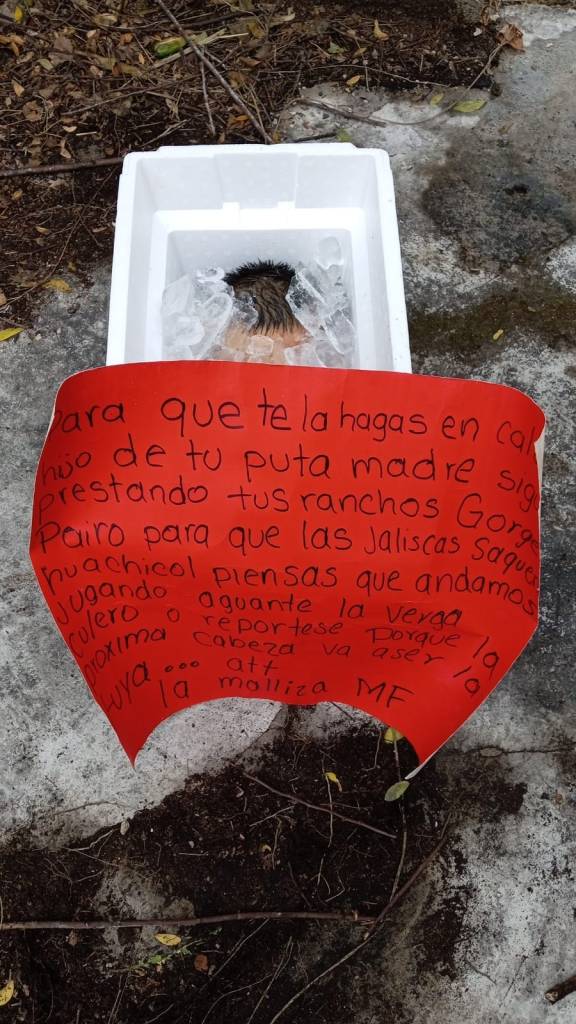 Para que te la hagas en
hijo de tu puta madre
prestando tus ranchos Gorge
Pairo para que las Jaliscas Saquen
huachicol piensas que andamos
Jugando aguante la verga
culero o reportese porque la
proxima cabeza va aser la
tuya... att
la malliza MF